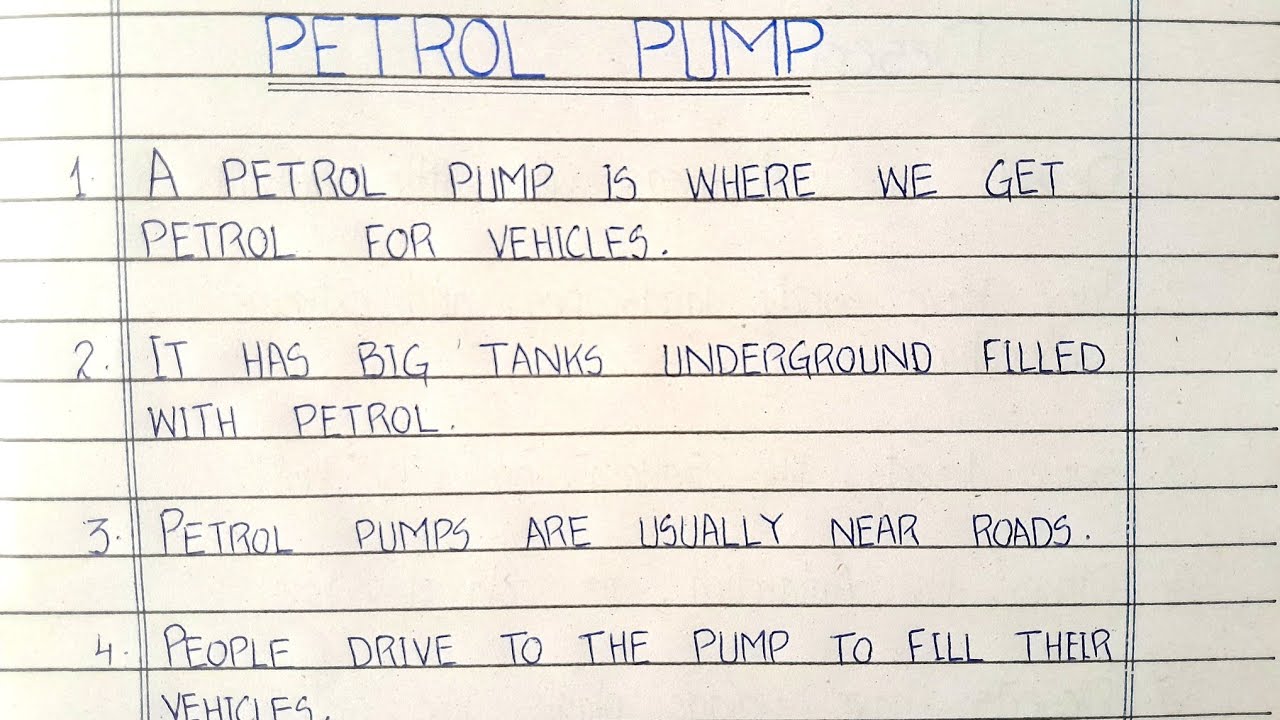 PETROL PUMP
1. A PETROL PUMP IS WHERE WE GET
PETROL FOR VEHICLES.
2. IT HAS BIG TANKS UNDERGROUND FILLED
WITH PETROL.
3. PETROL PUMPS ARE USUALLY NEAR ROADS.
4. PEOPLE DRIVE TO THE PUMP TO FILL THEIR
VEHICLES.